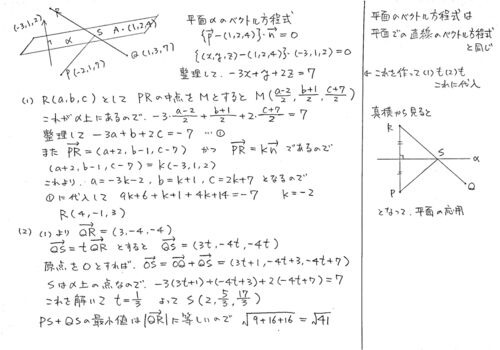 (-3,1,2)
R
α
S
A・(1,2,4)
P(-2,1,7)
Q(1,3,7)
平面αのベクトル方程式
{p-(1,2,4)}・n=0
{(x,y,z)-(1,2,4)}・(-3,1,2)=0
整理して、-3x+y+2z=7
(1) R(a,b,c)として PRの中点をMとすると M(a-2/2, b+1/2, c+7/2)
これがα上にあるので、-3・a-2/2+b+1/2+2・c+7/2=7
整理して -3a+b+2c=-7 …①
また PR=(a+2,b-1,c-7) かつ PR=kn であるので
(a+2,b-1,c-7)=k(-3,1,2)
これより、a=-3k-2, b=k+1, C=2k+7 となるので
①に代入して 9k+6+k+1+4k+14=-7 k=-2
R(4,-1,3)
(2) (1)より QR=(3,-4,-4)
QS=tQR とすると QS=(3t,-4t,-4t)
原点をOとすれば、OS=OQ+QS=(3t+1,-4t+3,-4t+7)
Sはα上の点なので、-3(3t+1)+(-4t+3)+2(-4t+7)=7
これを解いて t=1/3 よって S(2,5/3,17/3)
PS+QSの最小値は|QR|に等しいので √9+16+16=√41
平面αのベクトル方程式は
平面での直線のベクトル方程式
と同じ
← これを作って(1)も(2)も
これに代入
真横から見ると
R
S
α
P
Q
となって、平面の応用